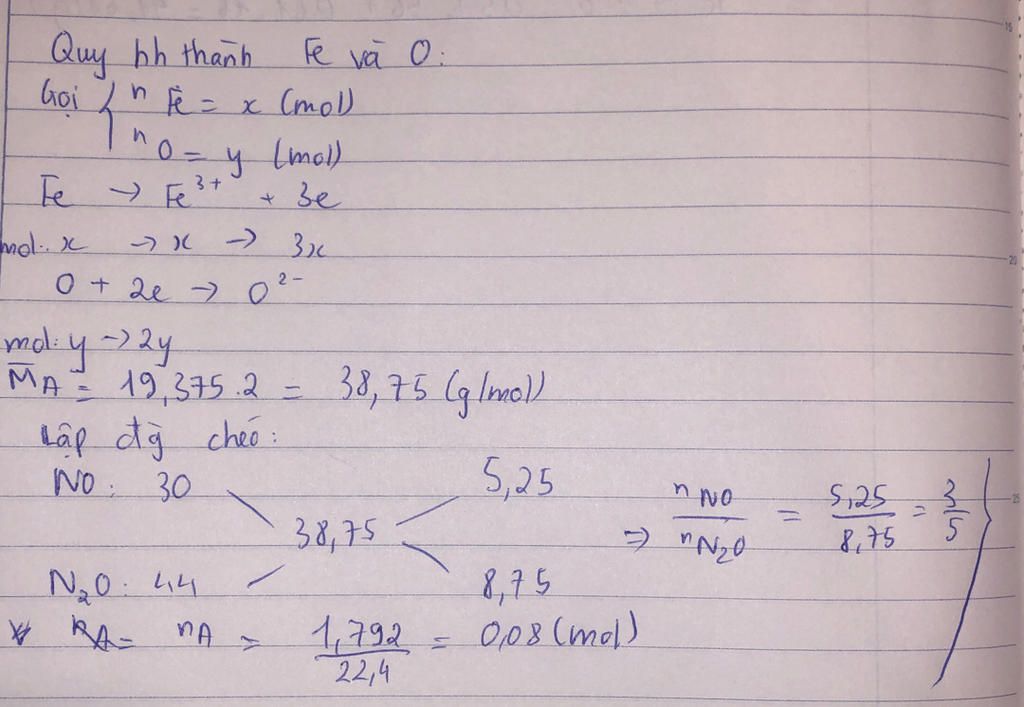 Quy hh thành Fe và O:
Gọi { n Fe = x (mol)
n O = y (mol)
Fe → Fe³⁺ + 3e
mol: x → x → 3x
O + 2e → O²⁻
mol: y → 2y
M̅A = 19,375.2 = 38,75 (g/mol)
Lập đg chéo:
NO: 30 5,25
38,75 ⇒ nNO / nN₂O = 5,25 / 8,75 = 3/5
N₂O: 44 8,75
nA = 1,792 / 22,4 = 0,08 (mol)